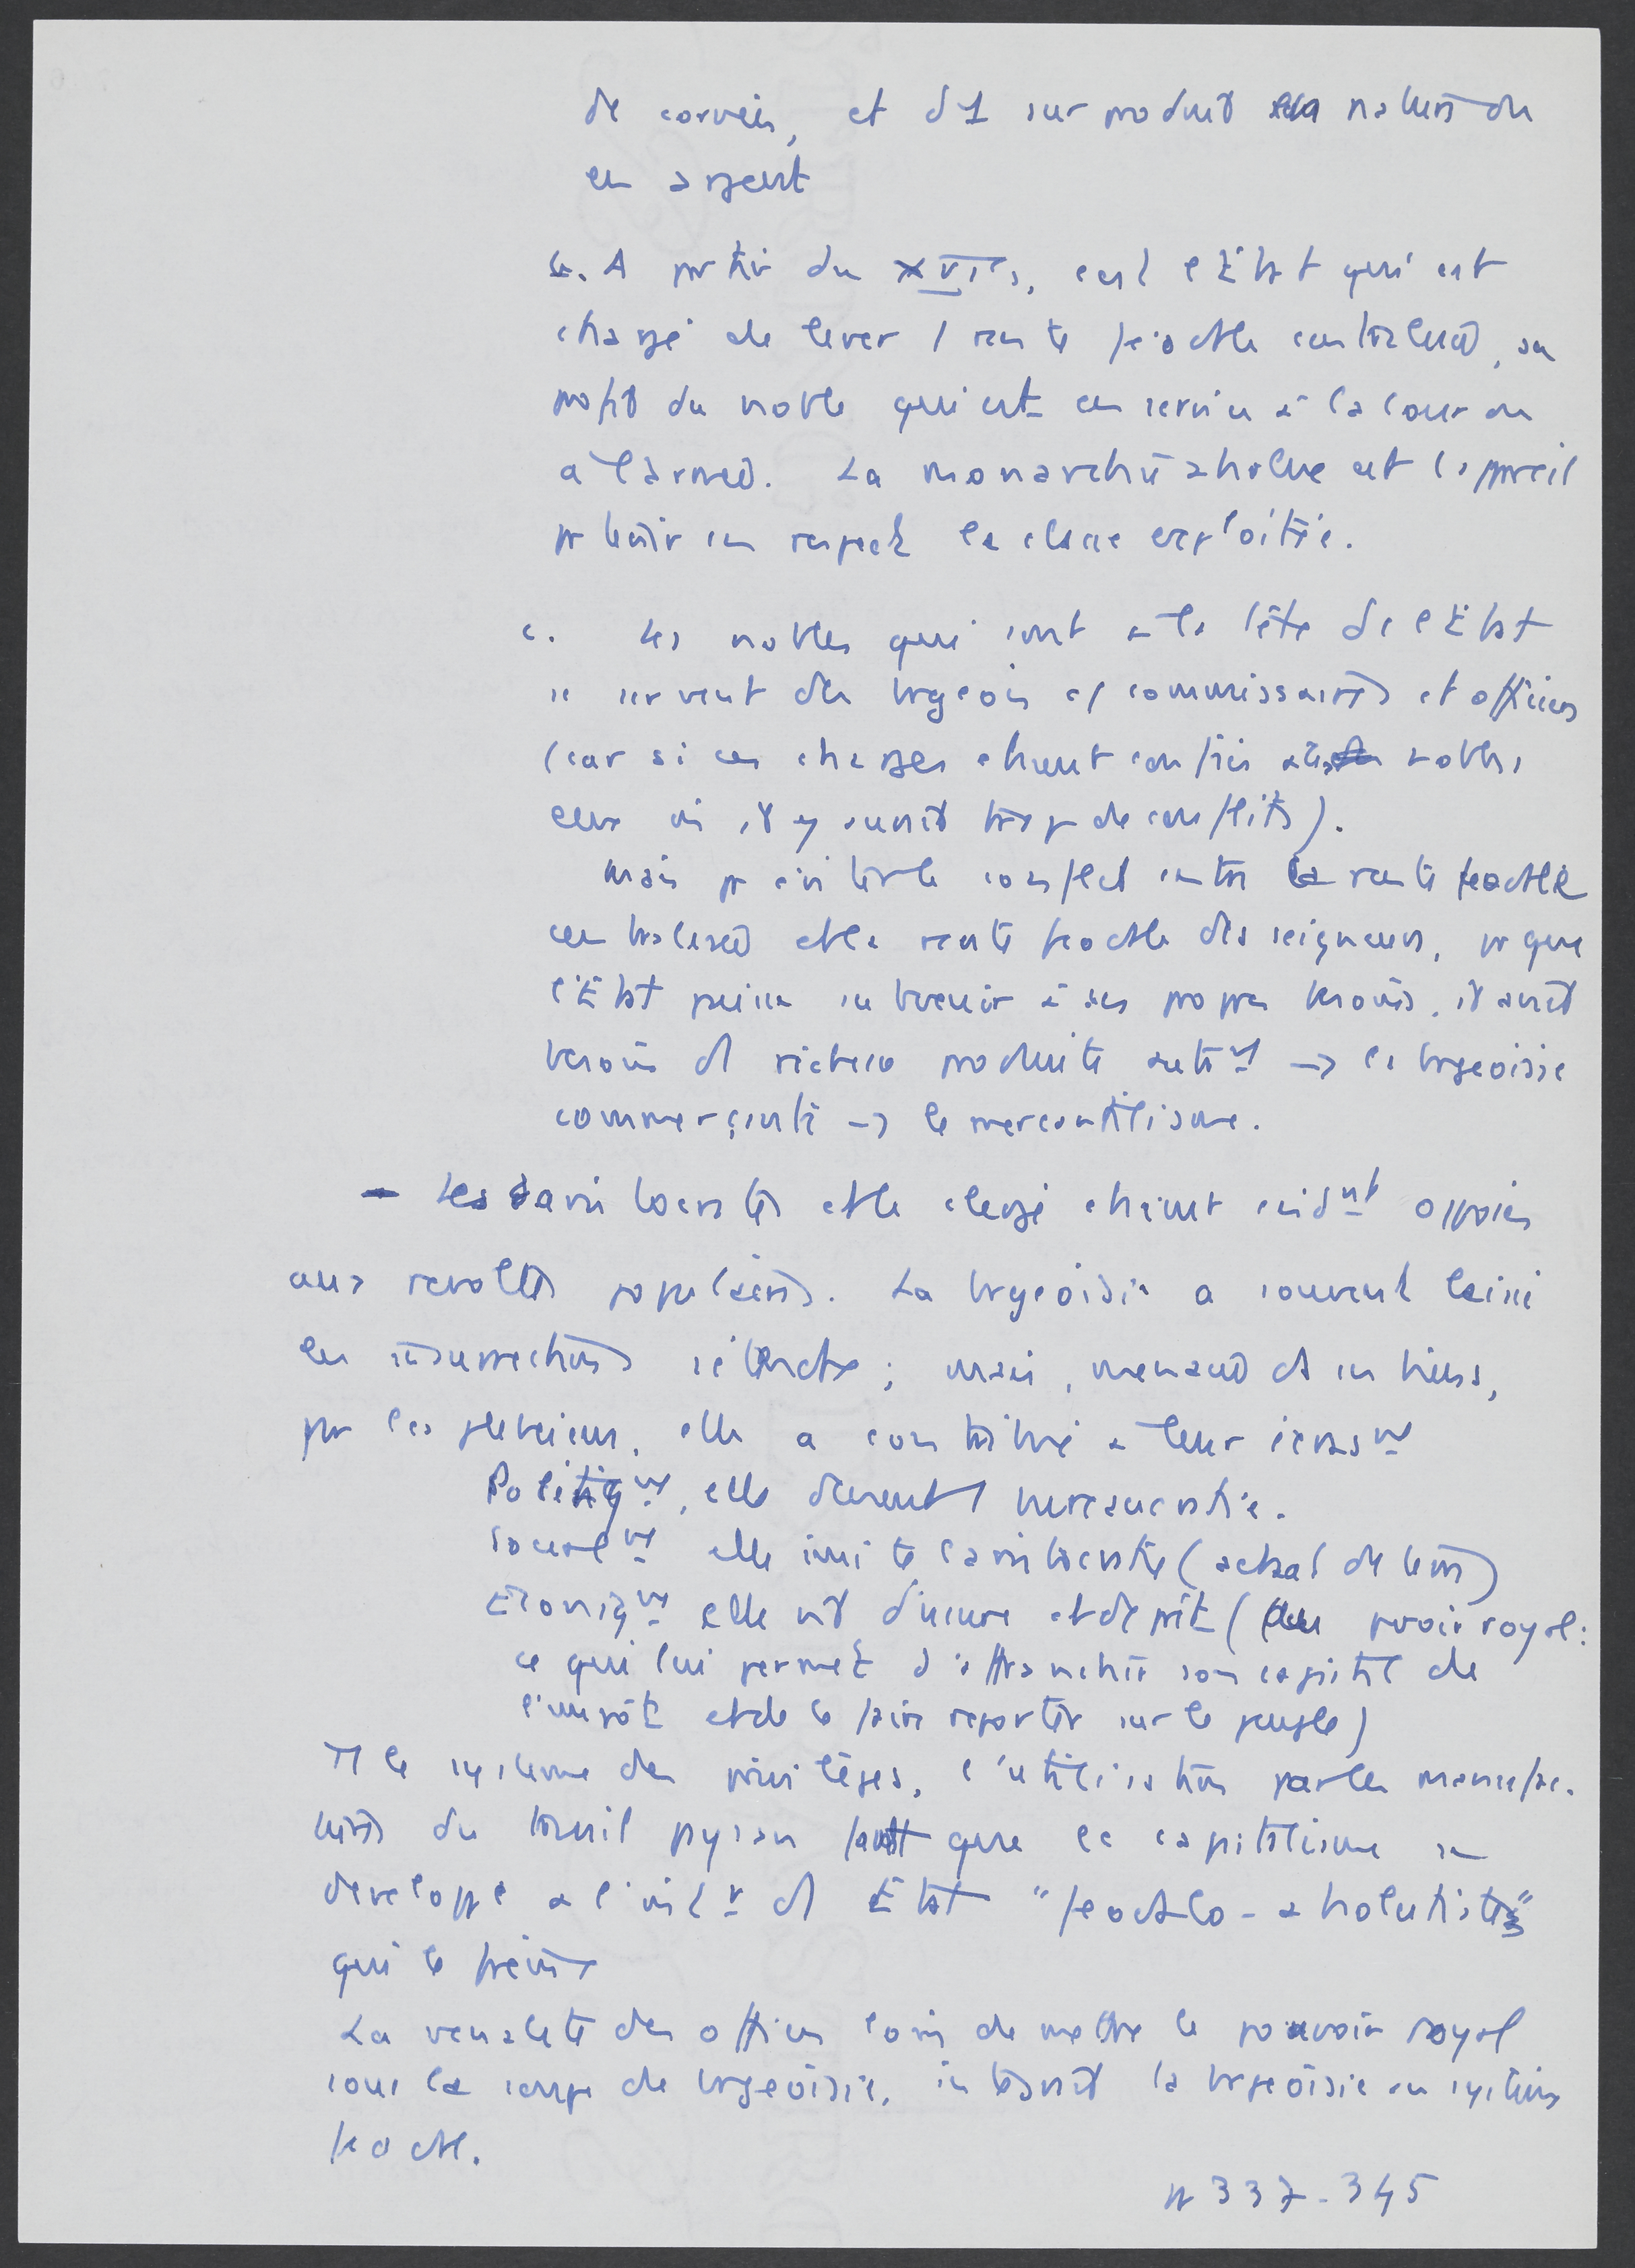 de corvées, et d'1 surproduit en nature ou
en argent
b. A partir du XVIe s, c'est l'État qui est
chargé de lever 1 rente féodale centralisée, au
profit du noble qui est en service à la cour ou
à l'armée. La monarchie absolue est l'appareil
pr tenir en respect la classe exploitée.
c. Les nobles qui sont à la tête de l'État
se servent des brgeois cô commissaires et officiers
(car si ces charges étaient confiées aux nobles
eux mêmes il y aurait trop de conflits).
Mais pr éviter le conflit entre la rente féodale
centralisée et la rente féodale des seigneurs, pr que
l'État puisse subvenir à ses propres besoins, il aurait
besoin de richesse produite autrt -> la brgeoisie
commerçante -> le mercantilisme.
- Les aristocrates et le clergé étaient évidt opposés
aux révoltes populaires. La brgeoisie a souvent laissé
les insurrections s'étendre; mais, menacée ds ses biens,
par les plébéiens, elle a contribué à leur écrasmt
Politiqmt, elle devient bureaucratie.
Socialmt elle imite l'aristocratie (achat de terres)
Économiqmt elle vit d'usure et de prêts (au pouvoir royal:
ce qui lui permet d'affranchir son capital de
l'impôt et de le faire reporter sur le peuple)
Tt le système des privilèges, l'utilisation par les manufac-
tures du travail paysan font que le capitalisme se
développe à l'intr d'1 État "féodalo-absolutiste"
qui le freine
La vénalité des offices loin de mettre le pouvoir royal
sous la coupe de brgeoisie, intégrait la brgeoisie au système
féodal.
pp 337-345